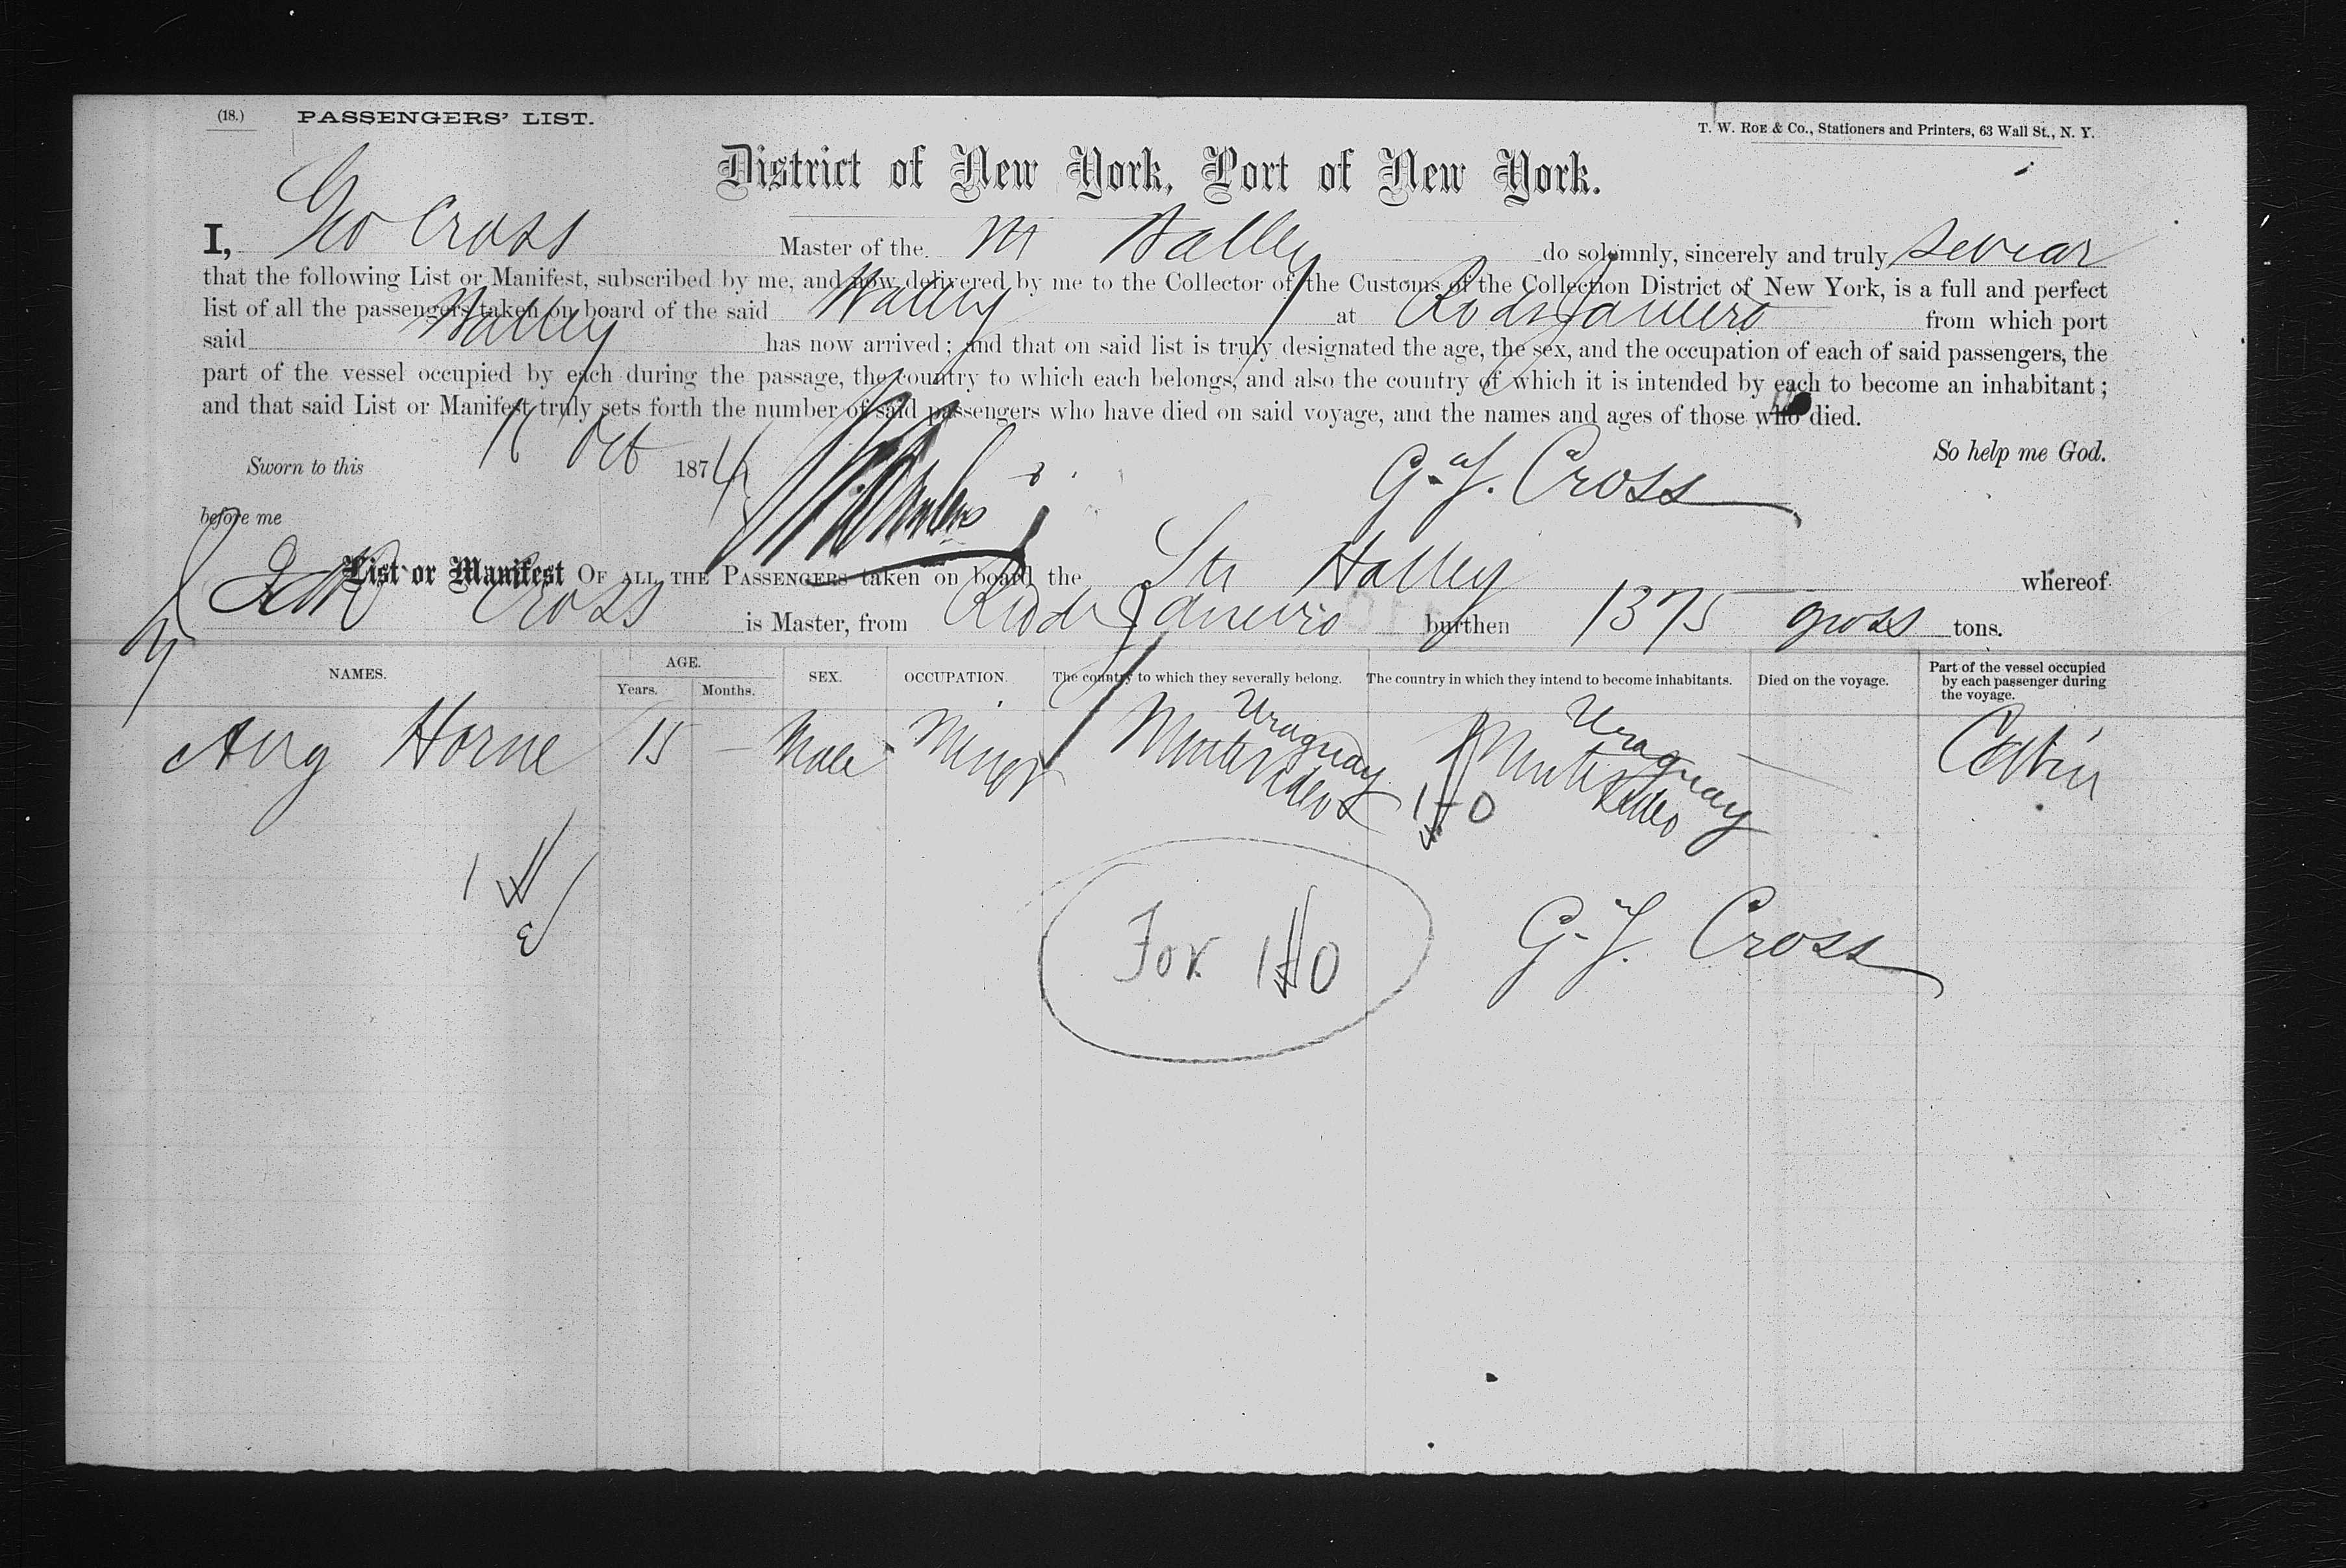 (18.) PASSENGERS' LIST.
T. W. ROE & Co., Stationers and Printers, 63 Wall St., N. Y.
District of New York, Port of New York.
I, Geo Cross Master of the Halley do solemnly, sincerely and truly swear
that the following List or Manifest, subscribed by me, and now delivered by me to the Collector of the Customs of the Collection District of New York, is a full and perfect
list of all the passengers taken on board of the said Halley at Rio de Janeiro from which port
said Halley has now arrived; and that on said list is truly designated the age, the sex, and the occupation of each of said passengers, the
part of the vessel occupied by each during the passage, the country to which each belongs, and also the country of which it is intended by each to become an inhabitant;
and that said List or Manifest truly sets forth the number of said passengers who have died on said voyage, and the names and ages of those who died.
So help me God.
Sworn to this Oct 187
G. J. Cross
before me
List or Manifest OF ALL THE PASSENGERS taken on board the Str Halley whereof
Cross is Master, from Rio de Janeiro burthen 1375 gross tons.
NAMES. AGE. Years. Months. SEX. OCCUPATION. The country to which they severally belong. The country in which they intend to become inhabitants. Died on the voyage. Part of the vessel occupied by each passenger during the voyage.
Aug Horne 15 — Male Minor Monte Video Uraguay Monte Video Uraguay — Cabin
1
For
G. J. Cross